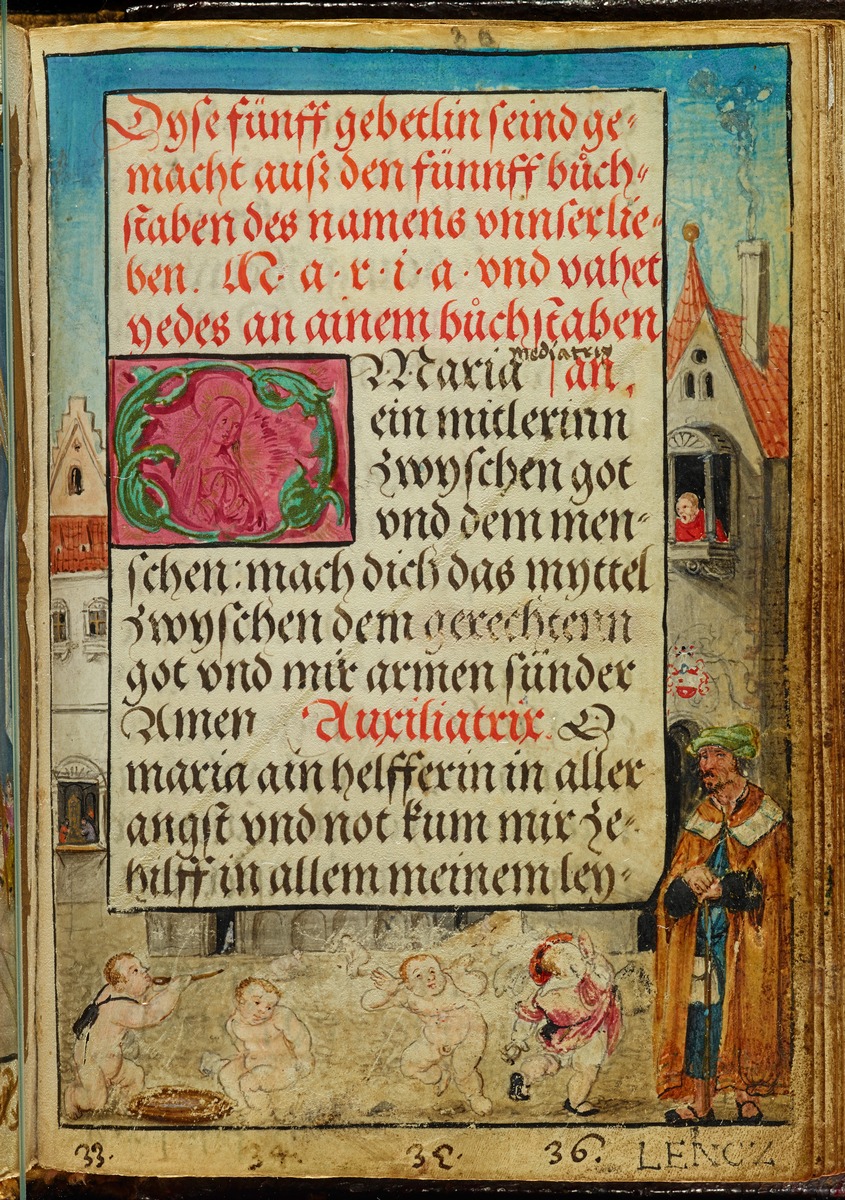 Dyse fünff gebetlin seind ge=
macht auß den fünnff bůch=
staben des namens vnnser lie=
ben. M. a. r. i. a. vnd vahet
yedes an ainem bůchstaben
mediatrix
Maria an,
ein mitlerinn
zwyschen got
vnd dem men=
schen: mach dich das myttel
zwyschen dem gerechtenn
got vnd mir armen sünder
Amen Auxiliatrix. O
maria ain helfferin in aller
angst vnd not kum mir ze=
hilff in allem meinem ley=
33. 34. 35. 36. LENCZ